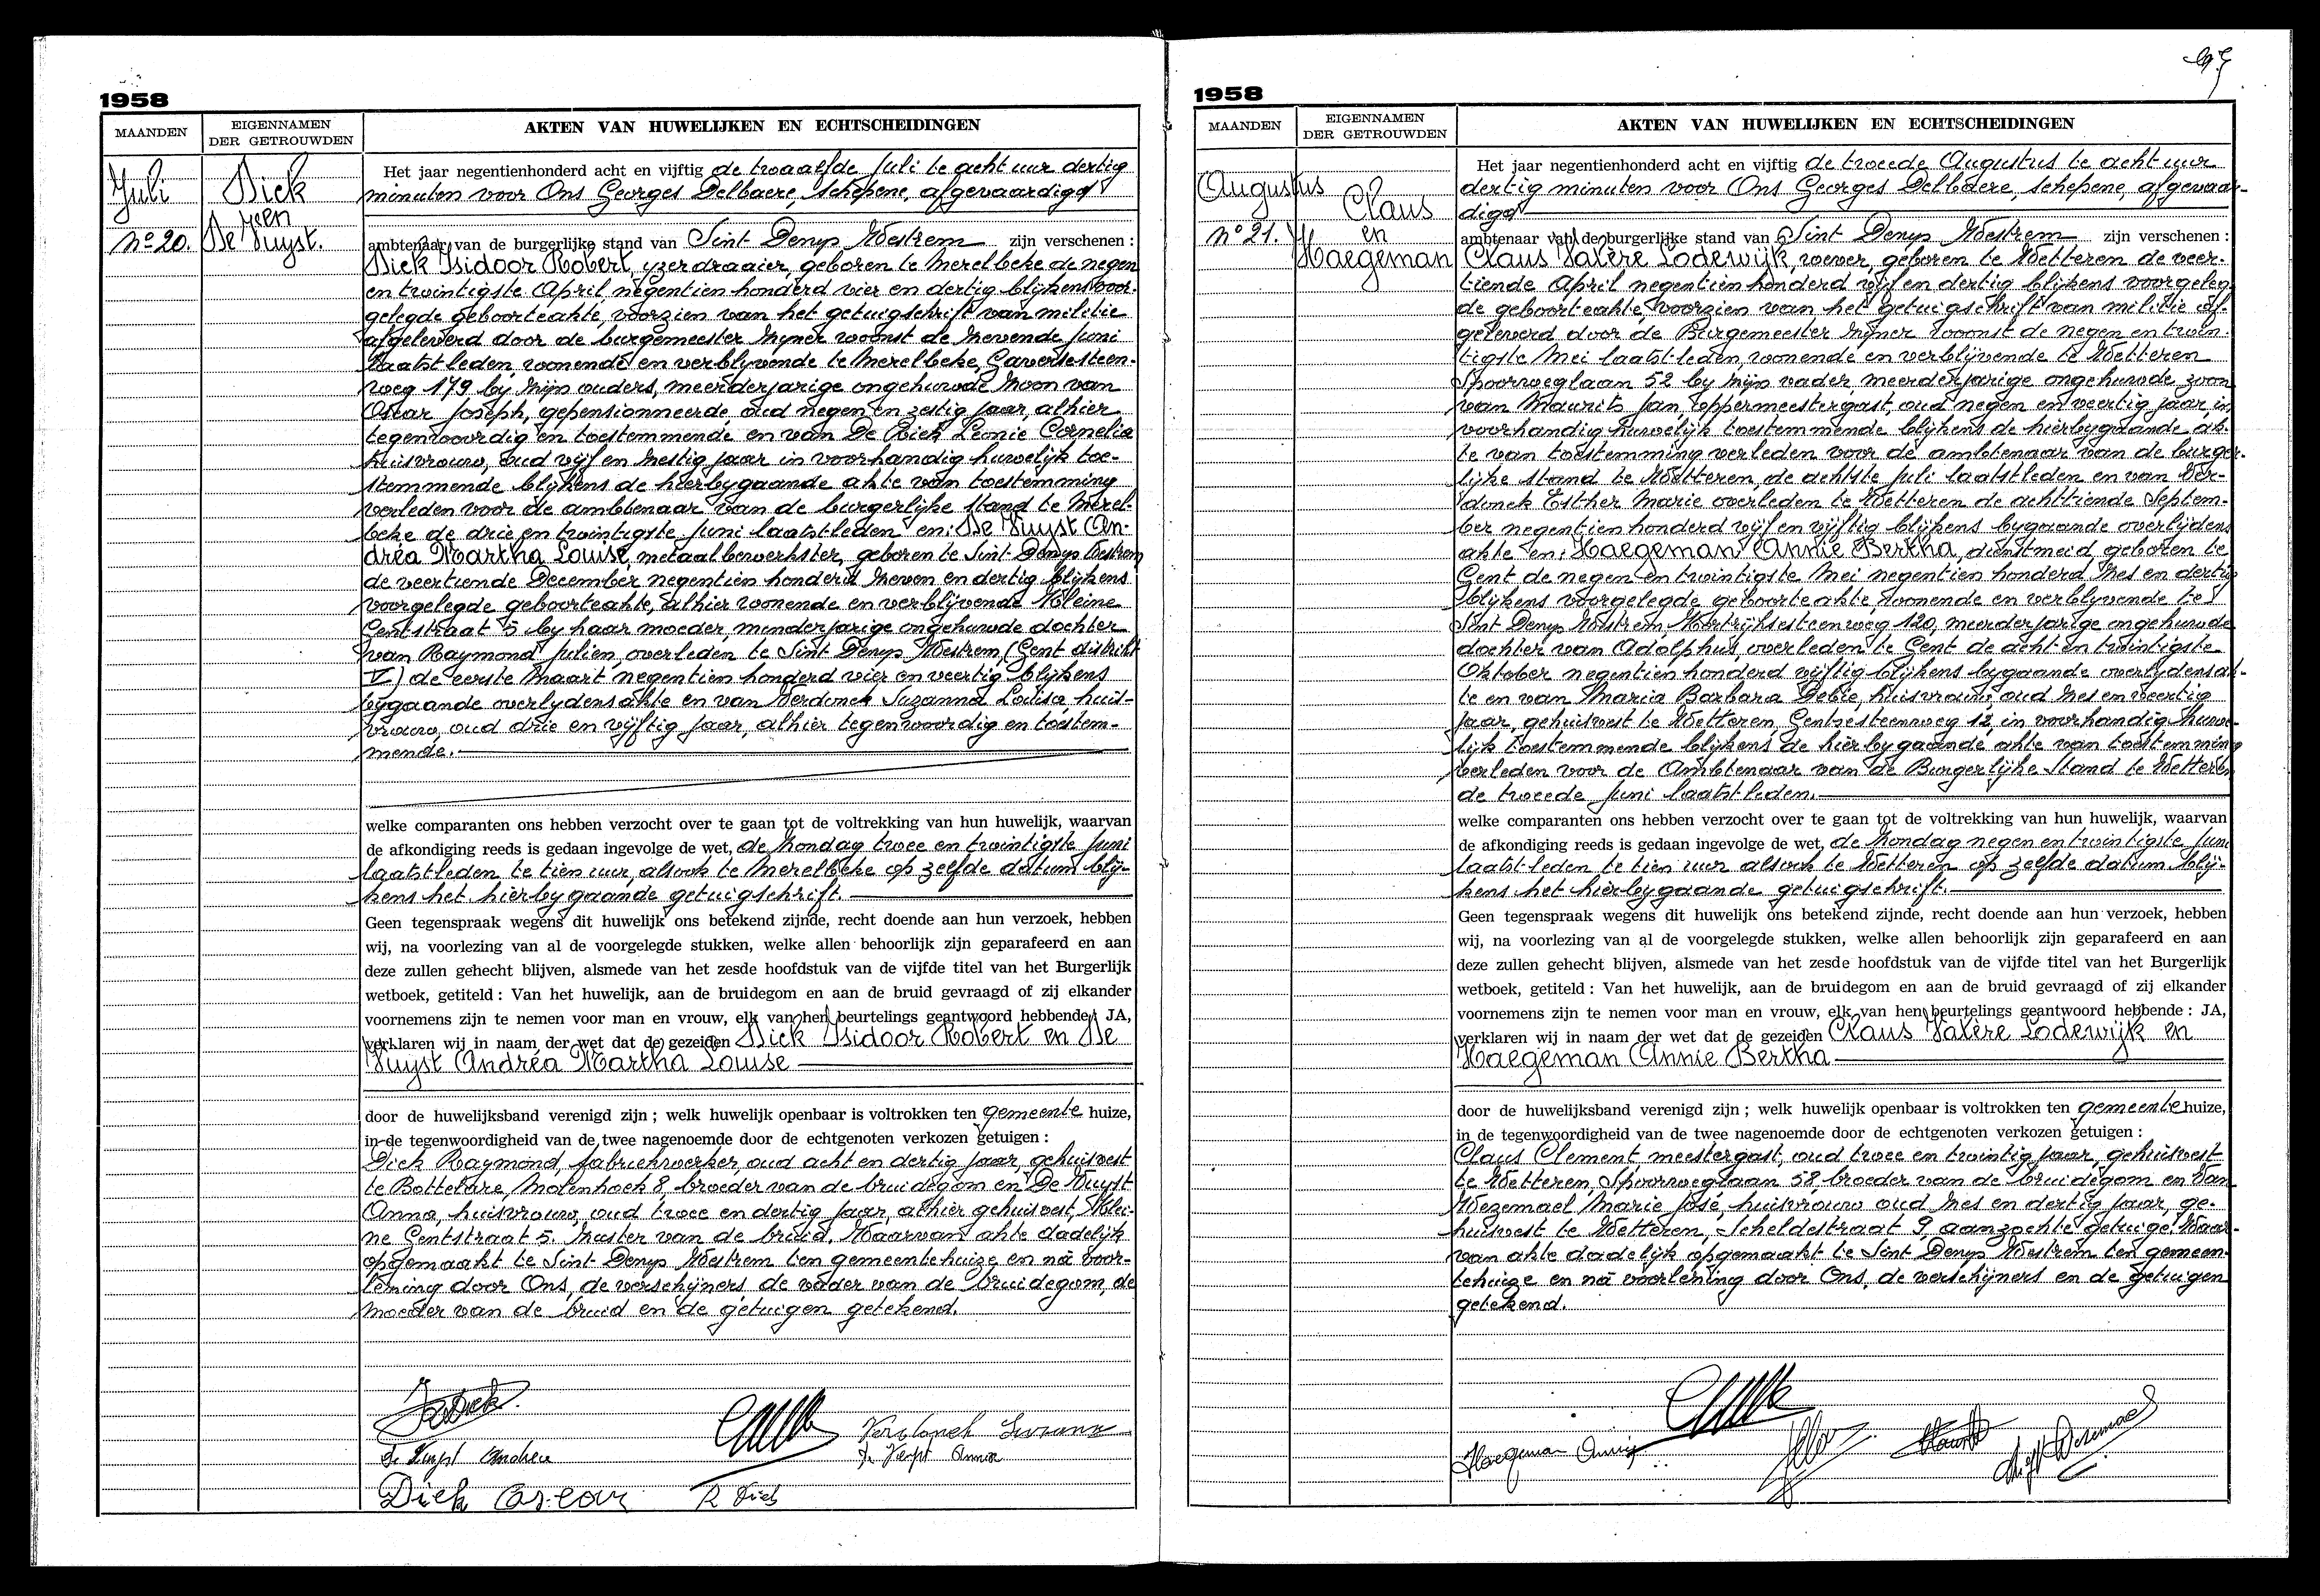 1958
MAANDEN
EIGENNAMEN
DER GETROUWDEN
AKTEN VAN HUWELIJKEN EN ECHTSCHEIDINGEN
Juli
Dick
en
No 20.
De Vuyst.
Het jaar negentienhonderd acht en vijftig de twaalfde Juli te acht uur dertig
minuten voor Ons Georges Delbaere, schepene, afgevaardigd
ambtenaar van de burgerlijke stand van Sint Denys Westrem zijn verschenen :
Dick Isidoor Robert, yzerdraaier, geboren te Merelbeke de negen
en twintigste April negentien honderd vier en dertig blijkens voor-
gelegde geboorteakte, voorzien van het getuigschrift van militie
afgeleverd door de burgemeester zijner woonst de zevende Juni
laatstleden, wonende en verblyvende te Merelbeke, Gaversesteen-
weg 179 by zijn ouders, meerderjarige ongehuwde zoon van
Oscar Joseph, gepensionneerde, oud negen en zestig jaar, alhier
tegenwoordig en toestemmende en van De Rick Leonie Cornelia
huisvrouw, oud vijf en zestig jaar in voorhandig huwelijk toe-
stemmende blijkens de hierbygaande akte van toestemming
verleden voor de ambtenaar van de burgerlijke stand te Merel-
beke de drie en twintigste Juni laatstleden en: De Vuyst An-
dréa Martha Louise, metaalbewerkster, geboren te Sint Denys Westrem
de veertiende December negentien honderd zeven en dertig blijkens
voorgelegde geboorteakte, alhier wonende en verblijvende Kleine
Gentstraat 5 by haar moeder, minderjarige ongehuwde dochter
van Raymond Julien, overleden te Sint Denys Westrem (Gent distrikt
V) de eerste Maart negentien honderd vier en veertig blijkens
bygaande overlydensakte en van Verdonck Suzanna Louisa huis-
vrouw, oud drie en vijftig jaar, alhier tegenwoordig en toestem-
mende.
welke comparanten ons hebben verzocht over te gaan tot de voltrekking van hun huwelijk, waarvan
de afkondiging reeds is gedaan ingevolge de wet, de zondag twee en twintigste Juni
laatstleden te tien uur, alsook te Merelbeke op zelfde datum blij-
kens het hierbygaande getuigschrift.
Geen tegenspraak wegens dit huwelijk ons betekend zijnde, recht doende aan hun verzoek, hebben
wij, na voorlezing van al de voorgelegde stukken, welke allen behoorlijk zijn geparafeerd en aan
deze zullen gehecht blijven, alsmede van het zesde hoofdstuk van de vijfde titel van het Burgerlijk
wetboek, getiteld : Van het huwelijk, aan de bruidegom en aan de bruid gevraagd of zij elkander
voornemens zijn te nemen voor man en vrouw, elk van hen beurtelings geantwoord hebbende : JA,
verklaren wij in naam der wet dat de gezeiden Dick Isidoor Robert en De
Vuyst Andréa Martha Louise
door de huwelijksband verenigd zijn ; welk huwelijk openbaar is voltrokken ten gemeente huize,
in de tegenwoordigheid van de twee nagenoemde door de echtgenoten verkozen getuigen :
Dick Raymond, fabriekwerker, oud acht en dertig jaar, gehuisvest
te Bottelare, Molenhoek 8, broeder van de bruidegom en De Vuyst
Anna, huisvrouw, oud twee en dertig jaar, alhier gehuisvest, Klei-
ne Gentstraat 5. Zuster van de bruid. Waarvan akte dadelijk
opgemaakt te Sint Denys Westrem ten gemeentehuize en na voor-
lezing door Ons, de verschijners, de vader van de bruidegom, de
moeder van de bruid en de getuigen getekend.
De Vuyst Andrea
Verdonck Suzanna
De Vuyst Anna
Dick Oscar
R Dick
1958
MAANDEN
EIGENNAMEN
DER GETROUWDEN
AKTEN VAN HUWELIJKEN EN ECHTSCHEIDINGEN
Augustus
Claus
No 21.
en
Haegeman
Het jaar negentienhonderd acht en vijftig de tweede Augustus te acht uur
dertig minuten voor Ons Georges Delbaere, schepene, afgevaar-
digd
ambtenaar van de burgerlijke stand van Sint Denys Westrem zijn verschenen :
Claus Valère Lodewijk, wever, geboren te Wetteren de veer-
tiende April negentien honderd vijf en dertig blijkens voorgeleg-
de geboorteakte, voorzien van het getuigschrift van militie af-
geleverd door de Burgemeester zijner woonst de negen en twin-
tigste Mei laatstleden, wonende en verblijvende te Wetteren
Spoorweglaan 52 by zijn vader meerderjarige ongehuwde zoon
van Maurits Jan, oppermeestergast, oud negen en veertig jaar, in
voorhandig huwelijk toestemmende blijkens de hierbygaande ak-
te van toestemming verleden voor de ambtenaar van de burger-
lijke stand te Wetteren, de achtste Juli laatstleden en van Ver-
donck Esther Marie overleden te Wetteren de achttiende Septem-
ber negentien honderd vijf en vijftig blijkens bygaande overlijdens
akte en: Haegeman Annie Bertha, dienstmeid, geboren te
Gent de negen en twintigste Mei negentien honderd zes en dertig
blijkens voorgelegde geboorteakte, wonende en verblyvende te
Sint Denys Westrem, Kortrijksesteenweg 120, meerderjarige ongehuwde
dochter van Adolphus, overleden te Gent de acht en twintigste
Oktober negentien honderd vijftig blijkens bygaande overlydensak-
te en van Maria Barbara Debie, huisvrouw, oud zes en veertig
jaar, gehuisvest te Wetteren, Gentsesteenweg 12, in voorhandig huwe-
lijk toestemmende blijkens de hierbygaande akte van toestemming
verleden voor de Ambtenaar van de Burgerlijke Stand te Wetteren
de tweede Juni laatstleden.
welke comparanten ons hebben verzocht over te gaan tot de voltrekking van hun huwelijk, waarvan
de afkondiging reeds is gedaan ingevolge de wet, de zondag negen en twintigste Juni
laatstleden te tien uur alsook te Wetteren op zelfde datum blij-
kens het hierbygaande getuigschrift.
Geen tegenspraak wegens dit huwelijk ons betekend zijnde, recht doende aan hun verzoek, hebben
wij, na voorlezing van al de voorgelegde stukken, welke allen behoorlijk zijn geparafeerd en aan
deze zullen gehecht blijven, alsmede van het zesde hoofdstuk van de vijfde titel van het Burgerlijk
wetboek, getiteld : Van het huwelijk, aan de bruidegom en aan de bruid gevraagd of zij elkander
voornemens zijn te nemen voor man en vrouw, elk van hen beurtelings geantwoord hebbende : JA,
verklaren wij in naam der wet dat de gezeiden Claus Valère Lodewijk en
Haegeman Annie Bertha
door de huwelijksband verenigd zijn ; welk huwelijk openbaar is voltrokken ten gemeente huize,
in de tegenwoordigheid van de twee nagenoemde door de echtgenoten verkozen getuigen :
Claus Clement meestergast, oud twee en twintig jaar, gehuisvest
te Wetteren, Spoorweglaan 58, broeder van de bruidegom en Van
Wezemael Marie José, huisvrouw oud zes en dertig jaar, ge-
huisvest te Wetteren, Scheldestraat 9, aanzochte getuige. Waar-
van akte dadelijk opgemaakt te Sint Denys Westrem ten gemeen-
tehuize en na voorlezing door Ons, de verschijners en de getuigen
getekend.
Haegeman Annie